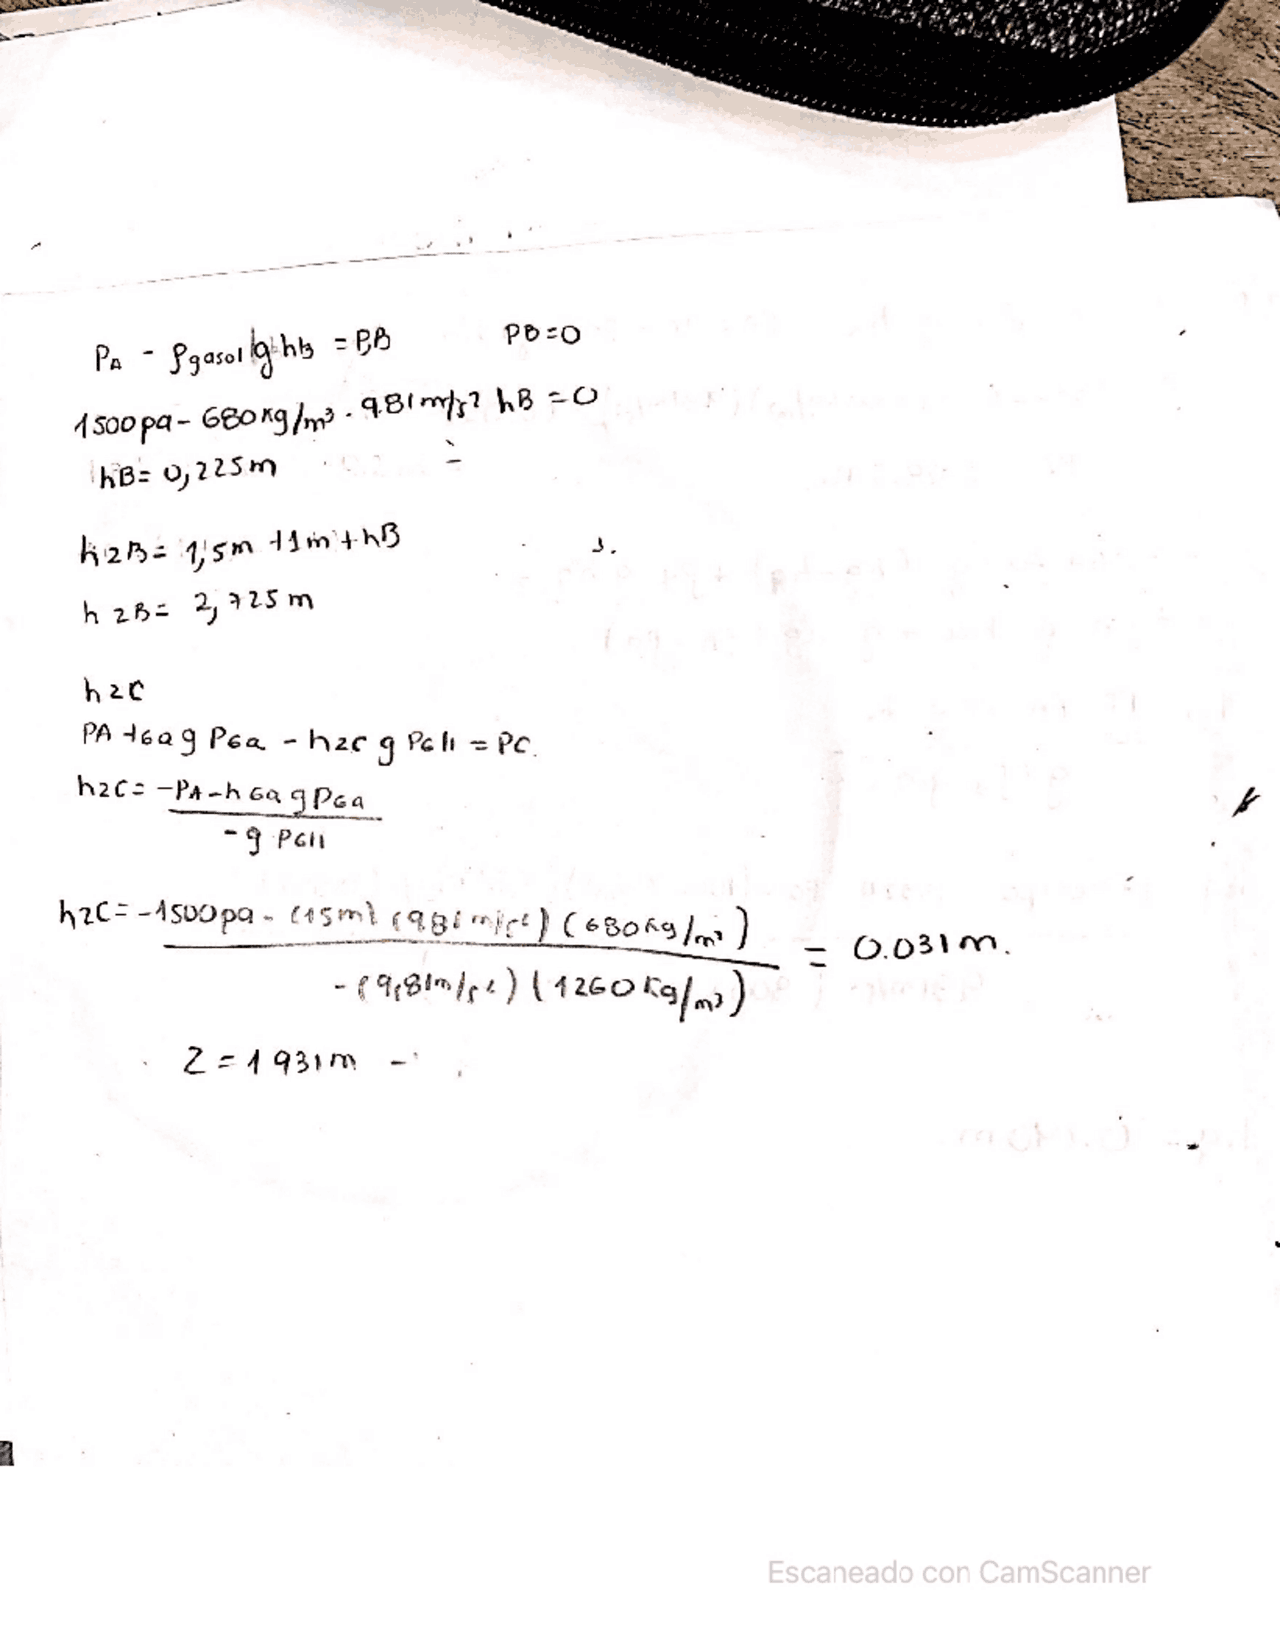 PA - ρgasol g hB = PB PB=0
1500pa - 680Kg/m³ · 9.81m/s² hB = 0
hB= 0,225m
h2B= 1,5m +1m + hB
h2B= 2,725m
h2C
PA + Ga g PGa - h2C g PGli = PC.
h2C= -PA-hGa g PGa
-g PGli
h2C= -1500pa - (15m) (981m/s²) (680Kg/m³)
= 0.031m.
-(9,81m/s²) (1260Kg/m³)
Z = 1931m -
Escaneado con CamScanner